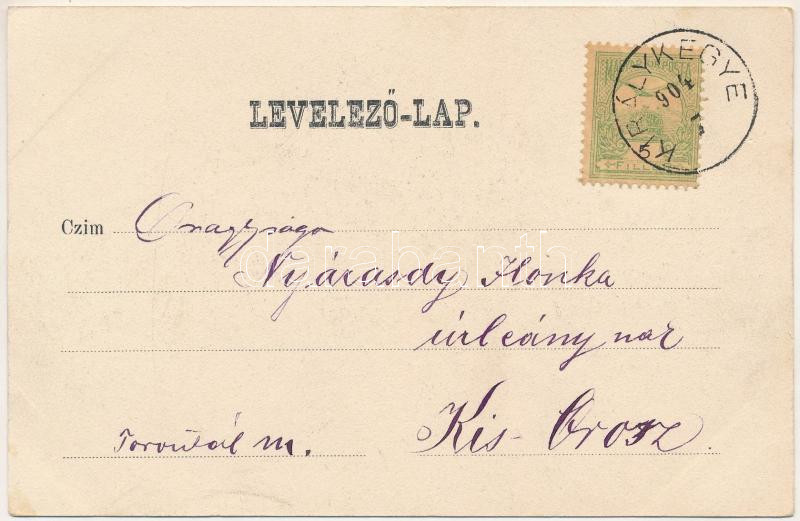 LEVELEZŐ-LAP.
KIRÁLYKEGYE
904
FILLÉR
Czim Őnagysága
Nyárasdy Ilonka
úrleány nak
Torontál m. Kis-Orosz
darabanth